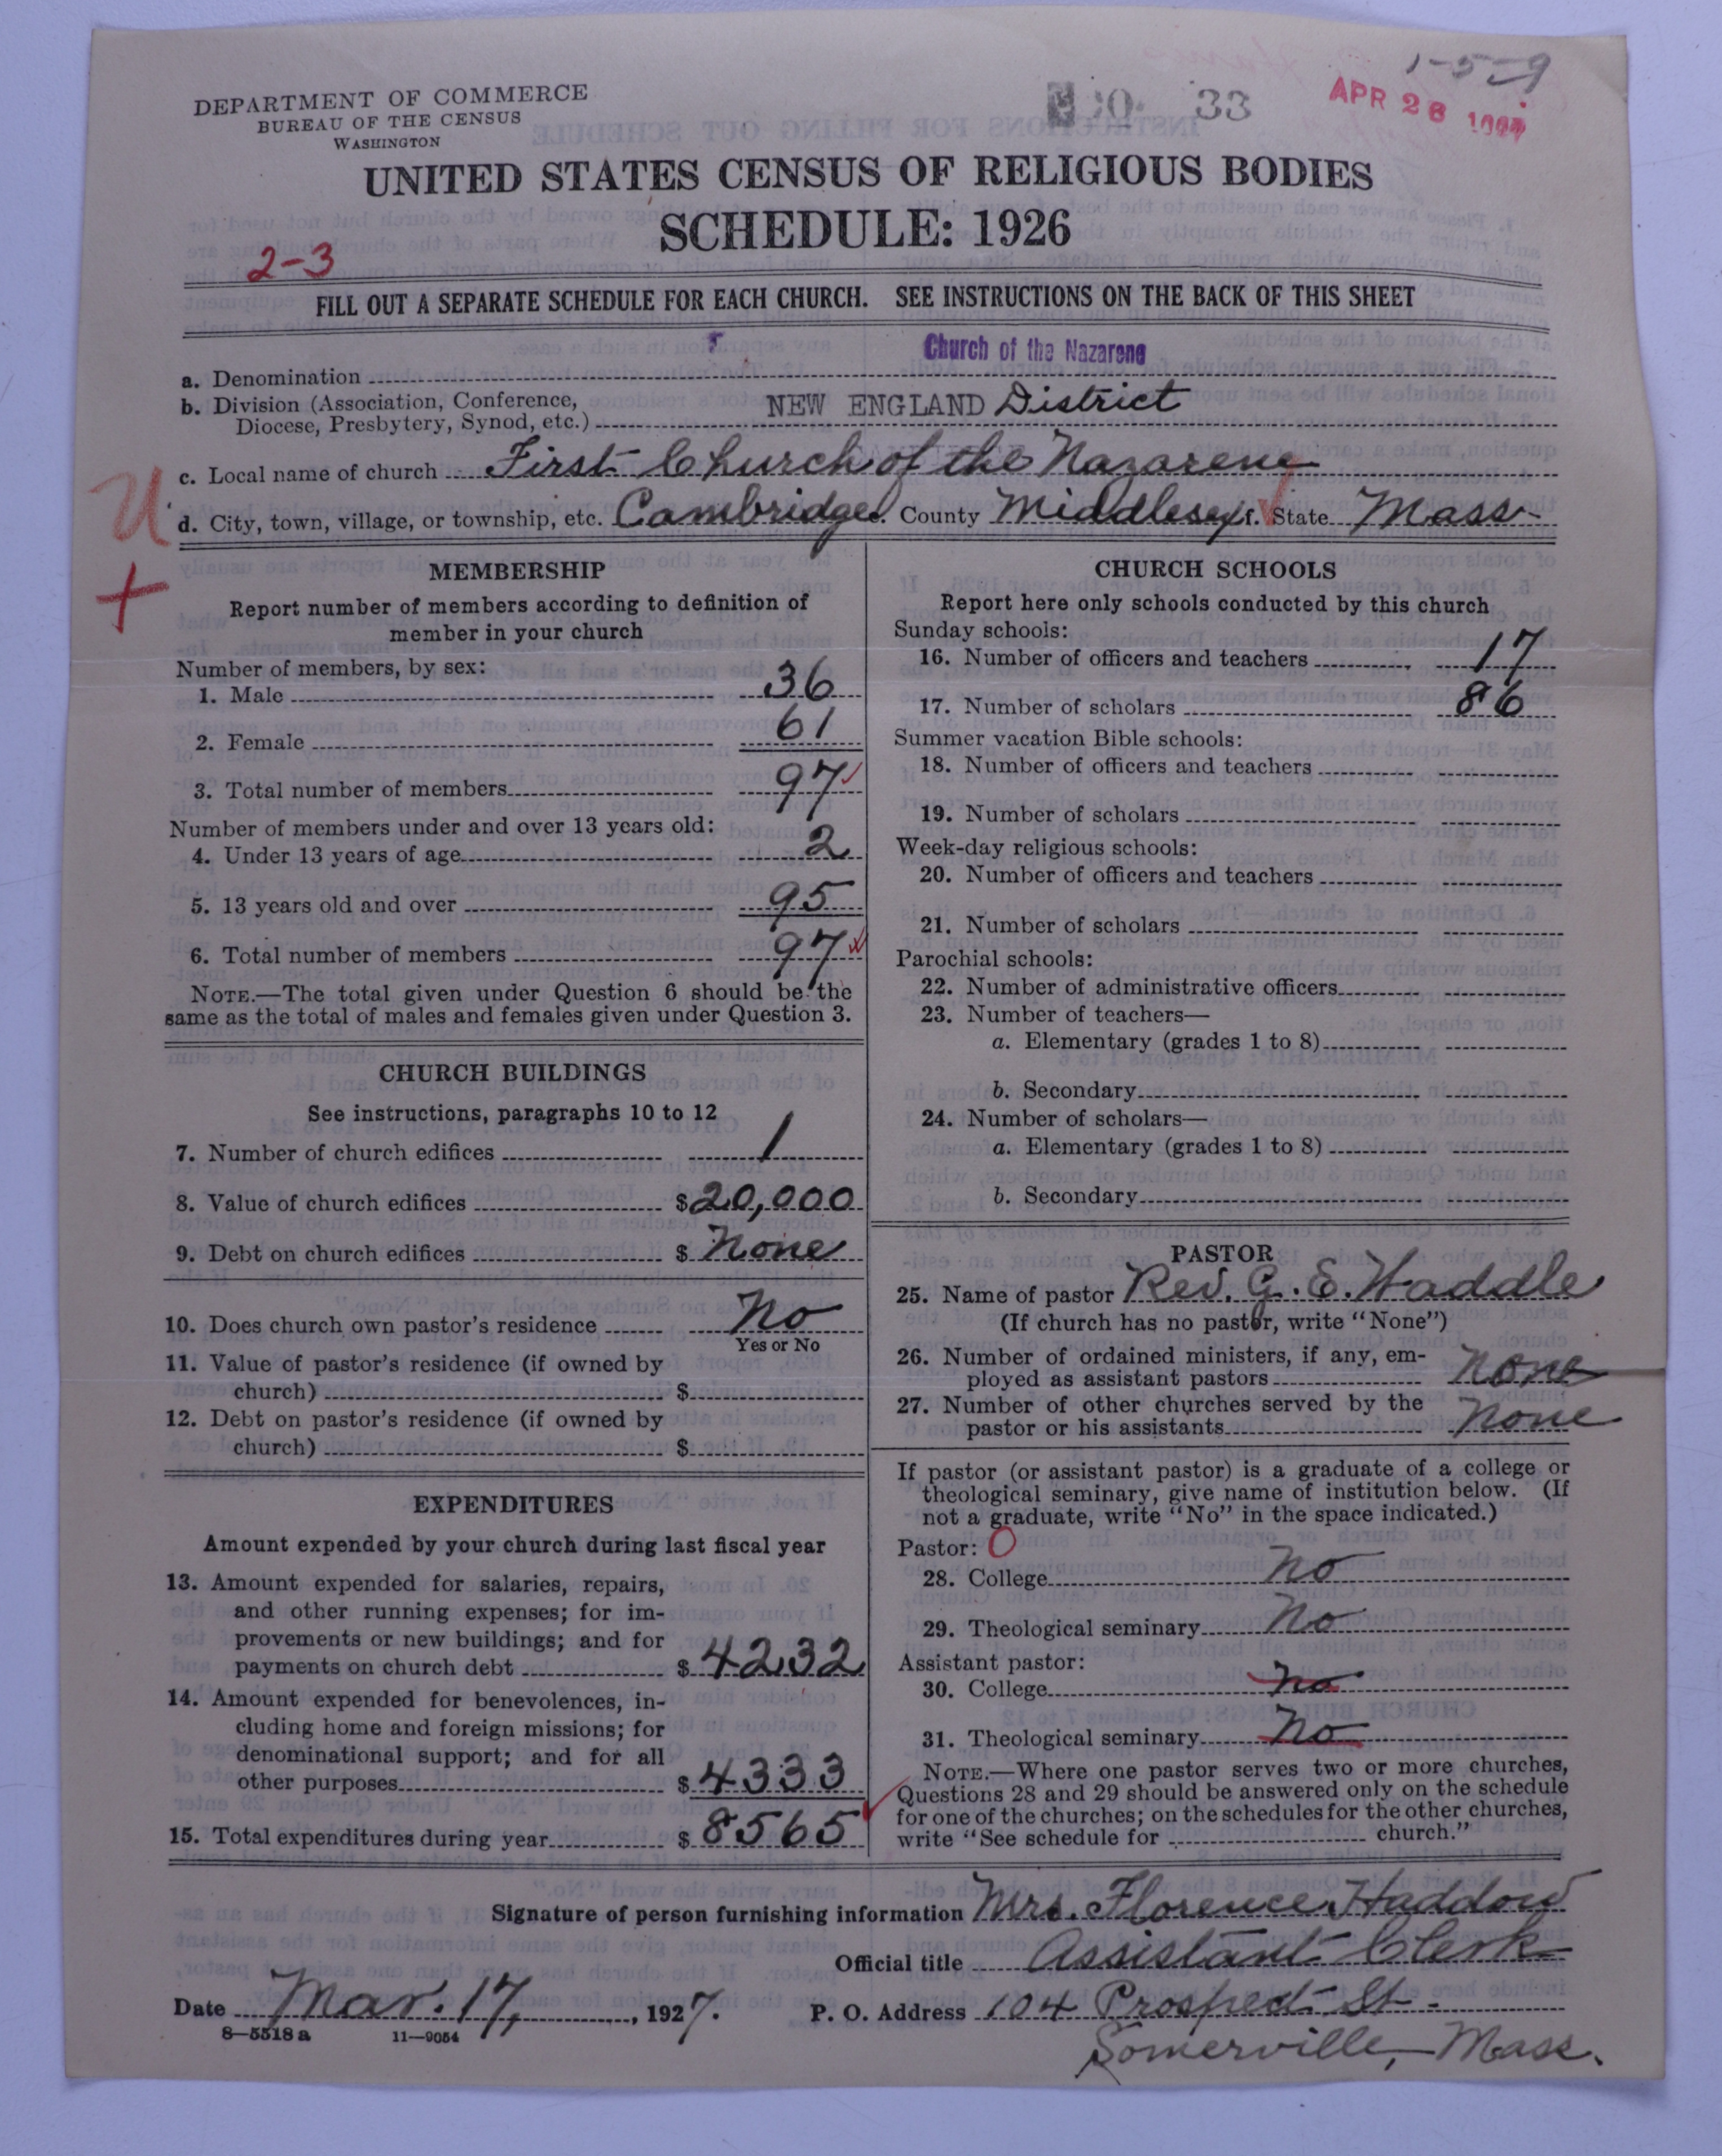 1-5-9
DEPARTMENT OF COMMERCE
BUREAU OF THE CENSUS
WASHINGTON
33
APR 28
UNITED STATES CENSUS OF RELIGIOUS BODIES
SCHEDULE: 1926
2-3
FILL OUT A SEPARATE SCHEDULE FOR EACH CHURCH. SEE INSTRUCTIONS ON THE BACK OF THIS SHEET
a. Denomination Church of the Nazarene
b. Division (Association, Conference, Diocese, Presbytery, Synod, etc.) NEW ENGLAND District
c. Local name of church First Church of the Nazarene
U
d. City, town, village, or township, etc. Cambridge e. County Middlesex f. State Mass.
+
MEMBERSHIP
Report number of members according to definition of
member in your church
Number of members, by sex:
1. Male 36
2. Female 61
3. Total number of members 97
Number of members under and over 13 years old:
4. Under 13 years of age 2
5. 13 years old and over 95
6. Total number of members 97
NOTE.—The total given under Question 6 should be the
same as the total of males and females given under Question 3.
CHURCH BUILDINGS
See instructions, paragraphs 10 to 12
7. Number of church edifices 1
8. Value of church edifices $20,000
9. Debt on church edifices $ None
10. Does church own pastor's residence No
Yes or No
11. Value of pastor's residence (if owned by
church) $
12. Debt on pastor's residence (if owned by
church) $
EXPENDITURES
Amount expended by your church during last fiscal year
13. Amount expended for salaries, repairs,
and other running expenses; for im-
provements or new buildings; and for
payments on church debt $ 4232
14. Amount expended for benevolences, in-
cluding home and foreign missions; for
denominational support; and for all
other purposes $ 4333
15. Total expenditures during year $ 8565
CHURCH SCHOOLS
Report here only schools conducted by this church
Sunday schools:
16. Number of officers and teachers 17
17. Number of scholars 86
Summer vacation Bible schools:
18. Number of officers and teachers
19. Number of scholars
Week-day religious schools:
20. Number of officers and teachers
21. Number of scholars
Parochial schools:
22. Number of administrative officers
23. Number of teachers—
a. Elementary (grades 1 to 8)
b. Secondary
24. Number of scholars—
a. Elementary (grades 1 to 8)
b. Secondary
PASTOR
25. Name of pastor Rev. G. E. Waddle
(If church has no pastor, write "None")
26. Number of ordained ministers, if any, em-
ployed as assistant pastors None
27. Number of other churches served by the
pastor or his assistants None
If pastor (or assistant pastor) is a graduate of a college or
theological seminary, give name of institution below. (If
not a graduate, write "No" in the space indicated.)
Pastor: O
28. College No
29. Theological seminary No
Assistant pastor:
30. College No
31. Theological seminary No
NOTE.—Where one pastor serves two or more churches,
Questions 28 and 29 should be answered only on the schedule
for one of the churches; on the schedules for the other churches,
write "See schedule for church."
Signature of person furnishing information Mrs. Florence Haddow
Official title Assistant Clerk
Date Mar. 17, 1927. P. O. Address 104 Prospect St.
8-5518 a 11-9054
Somerville, Mass.